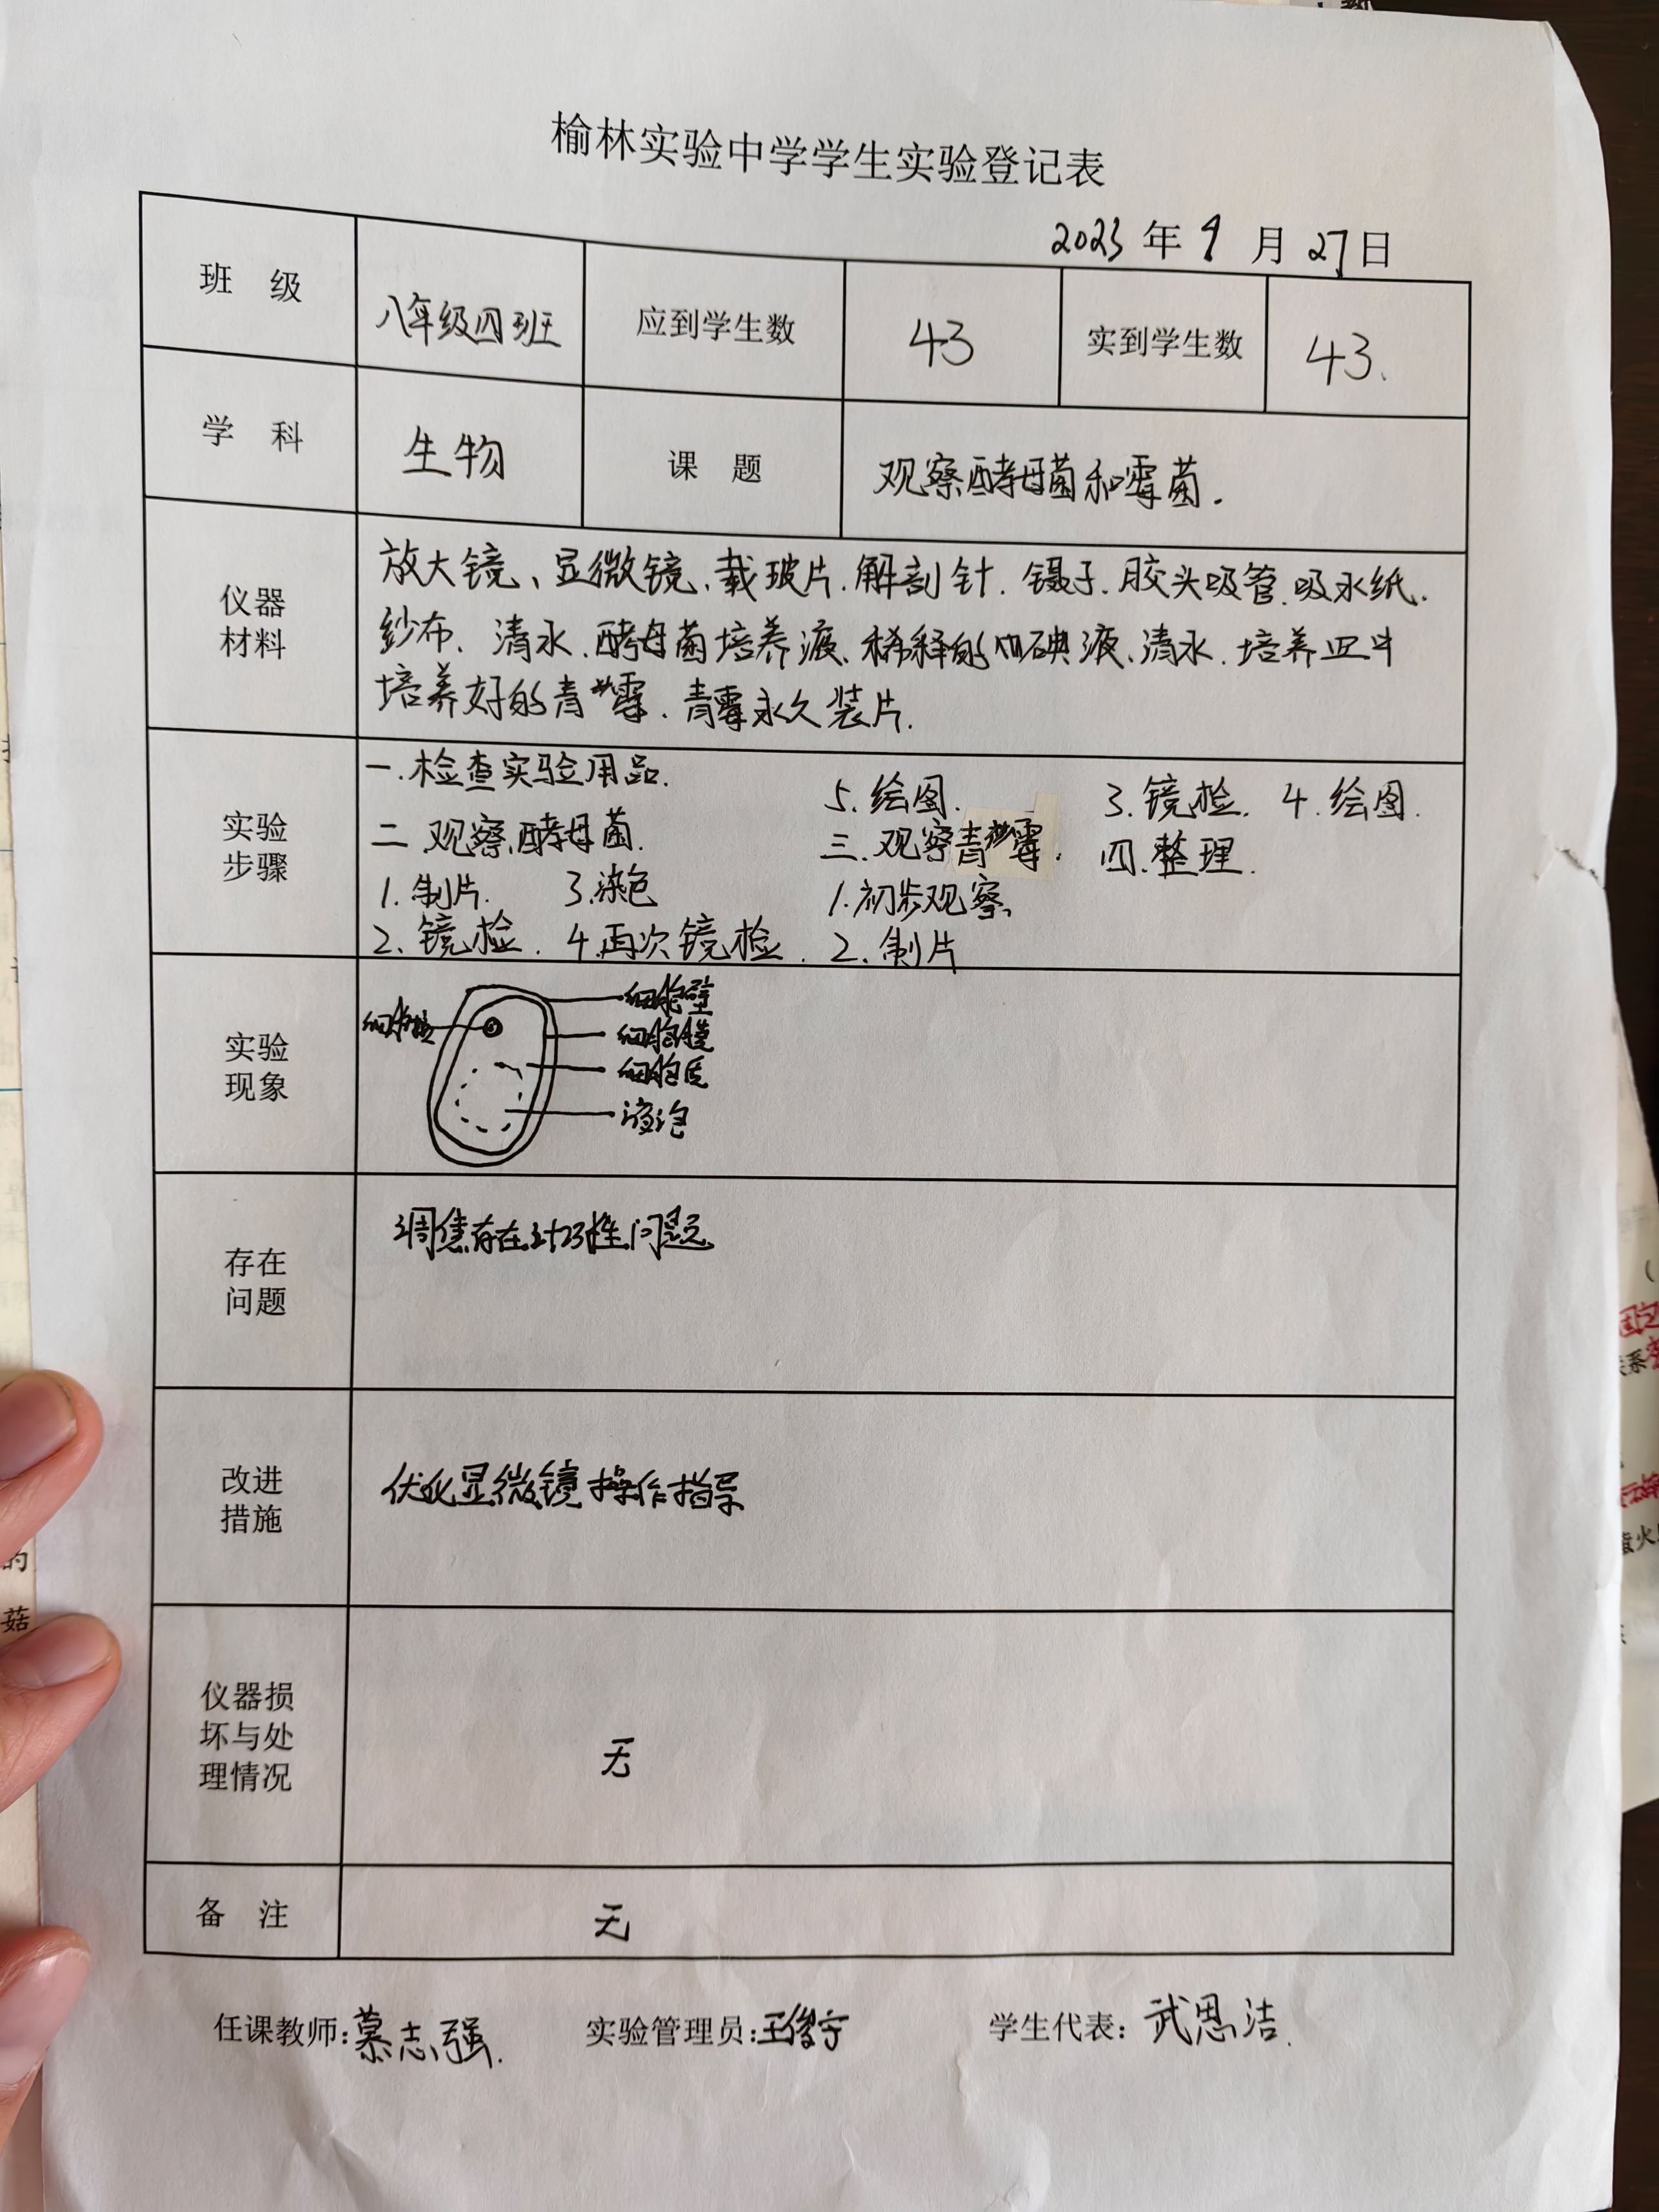 榆林实验中学学生实验登记表
2023年9月27日
班 级 八年级四班 应到学生数 43 实到学生数 43.
学 科 生物 课 题 观察酵母菌和霉菌.
仪器
材料
放大镜、显微镜、载玻片.解剖针.镊子.胶头吸管.吸水纸.
纱布、清水、酵母菌培养液、稀释的碘液、清水、培养皿中
培养好的青霉、青霉永久装片.
实验
步骤
一.检查实验用品.
二.观察酵母菌.
1.制片. 3.染色
2.镜检. 4.再次镜检.
5.绘图.
三.观察青霉.
1.初步观察.
2.制片
3.镜检. 4.绘图.
四.整理.
实验
现象
细胞核
细胞壁
细胞膜
细胞质
液泡
存在
问题
调焦存在性问题
改进
措施
优化显微镜操作指导
仪器损
坏与处
理情况
无
备 注 无
任课教师:慕志强. 实验管理员:王俊宇 学生代表:武思洁.
的
菇